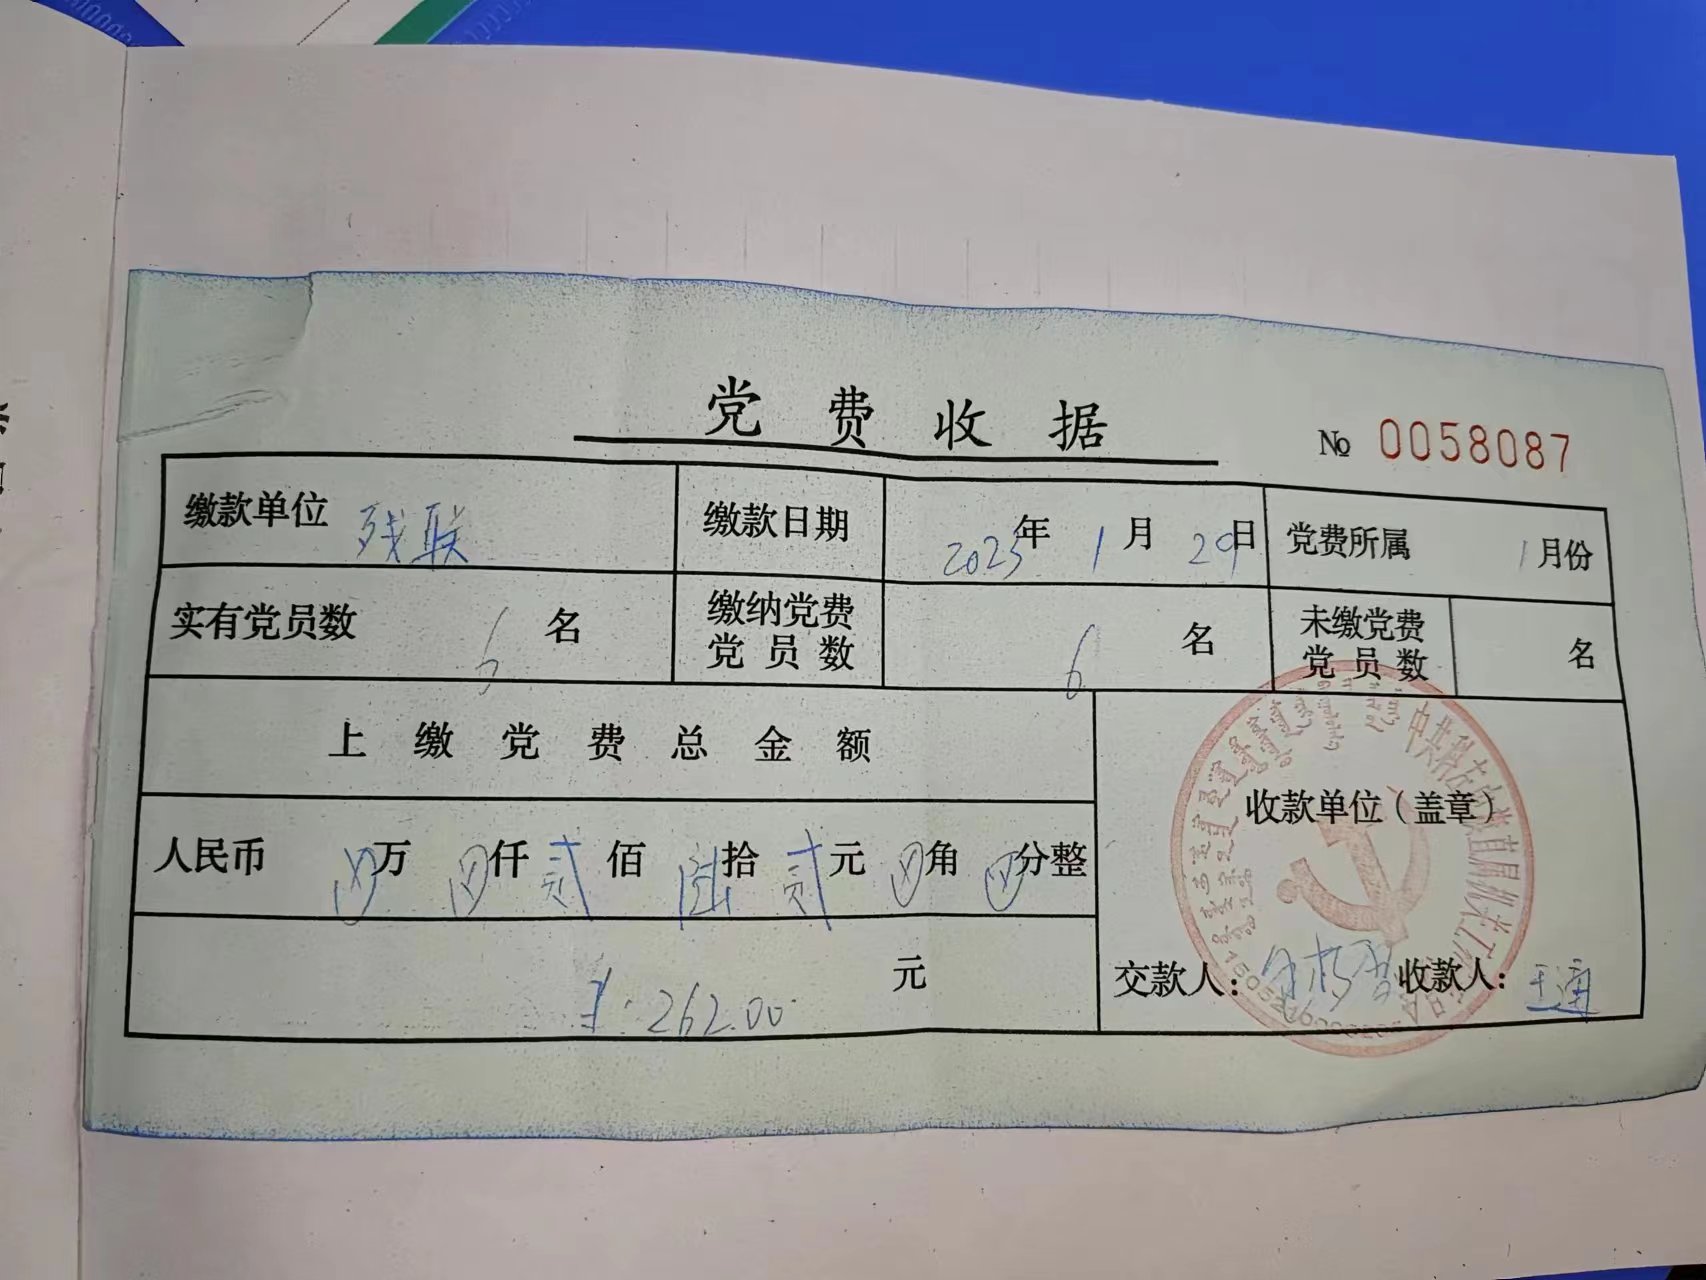 党费收据
№ 0058087
缴款单位 残联 缴款日期 2023年1月29日 党费所属 1月份
实有党员数 6名 缴纳党费党员数 6名 未缴党费党员数 名
上缴党费总金额
人民币 万 仟贰佰陆拾贰元 角 分整
¥:262.00 元
收款单位(盖章)
交款人: 收款人:王通
中共科左后旗直属机关工